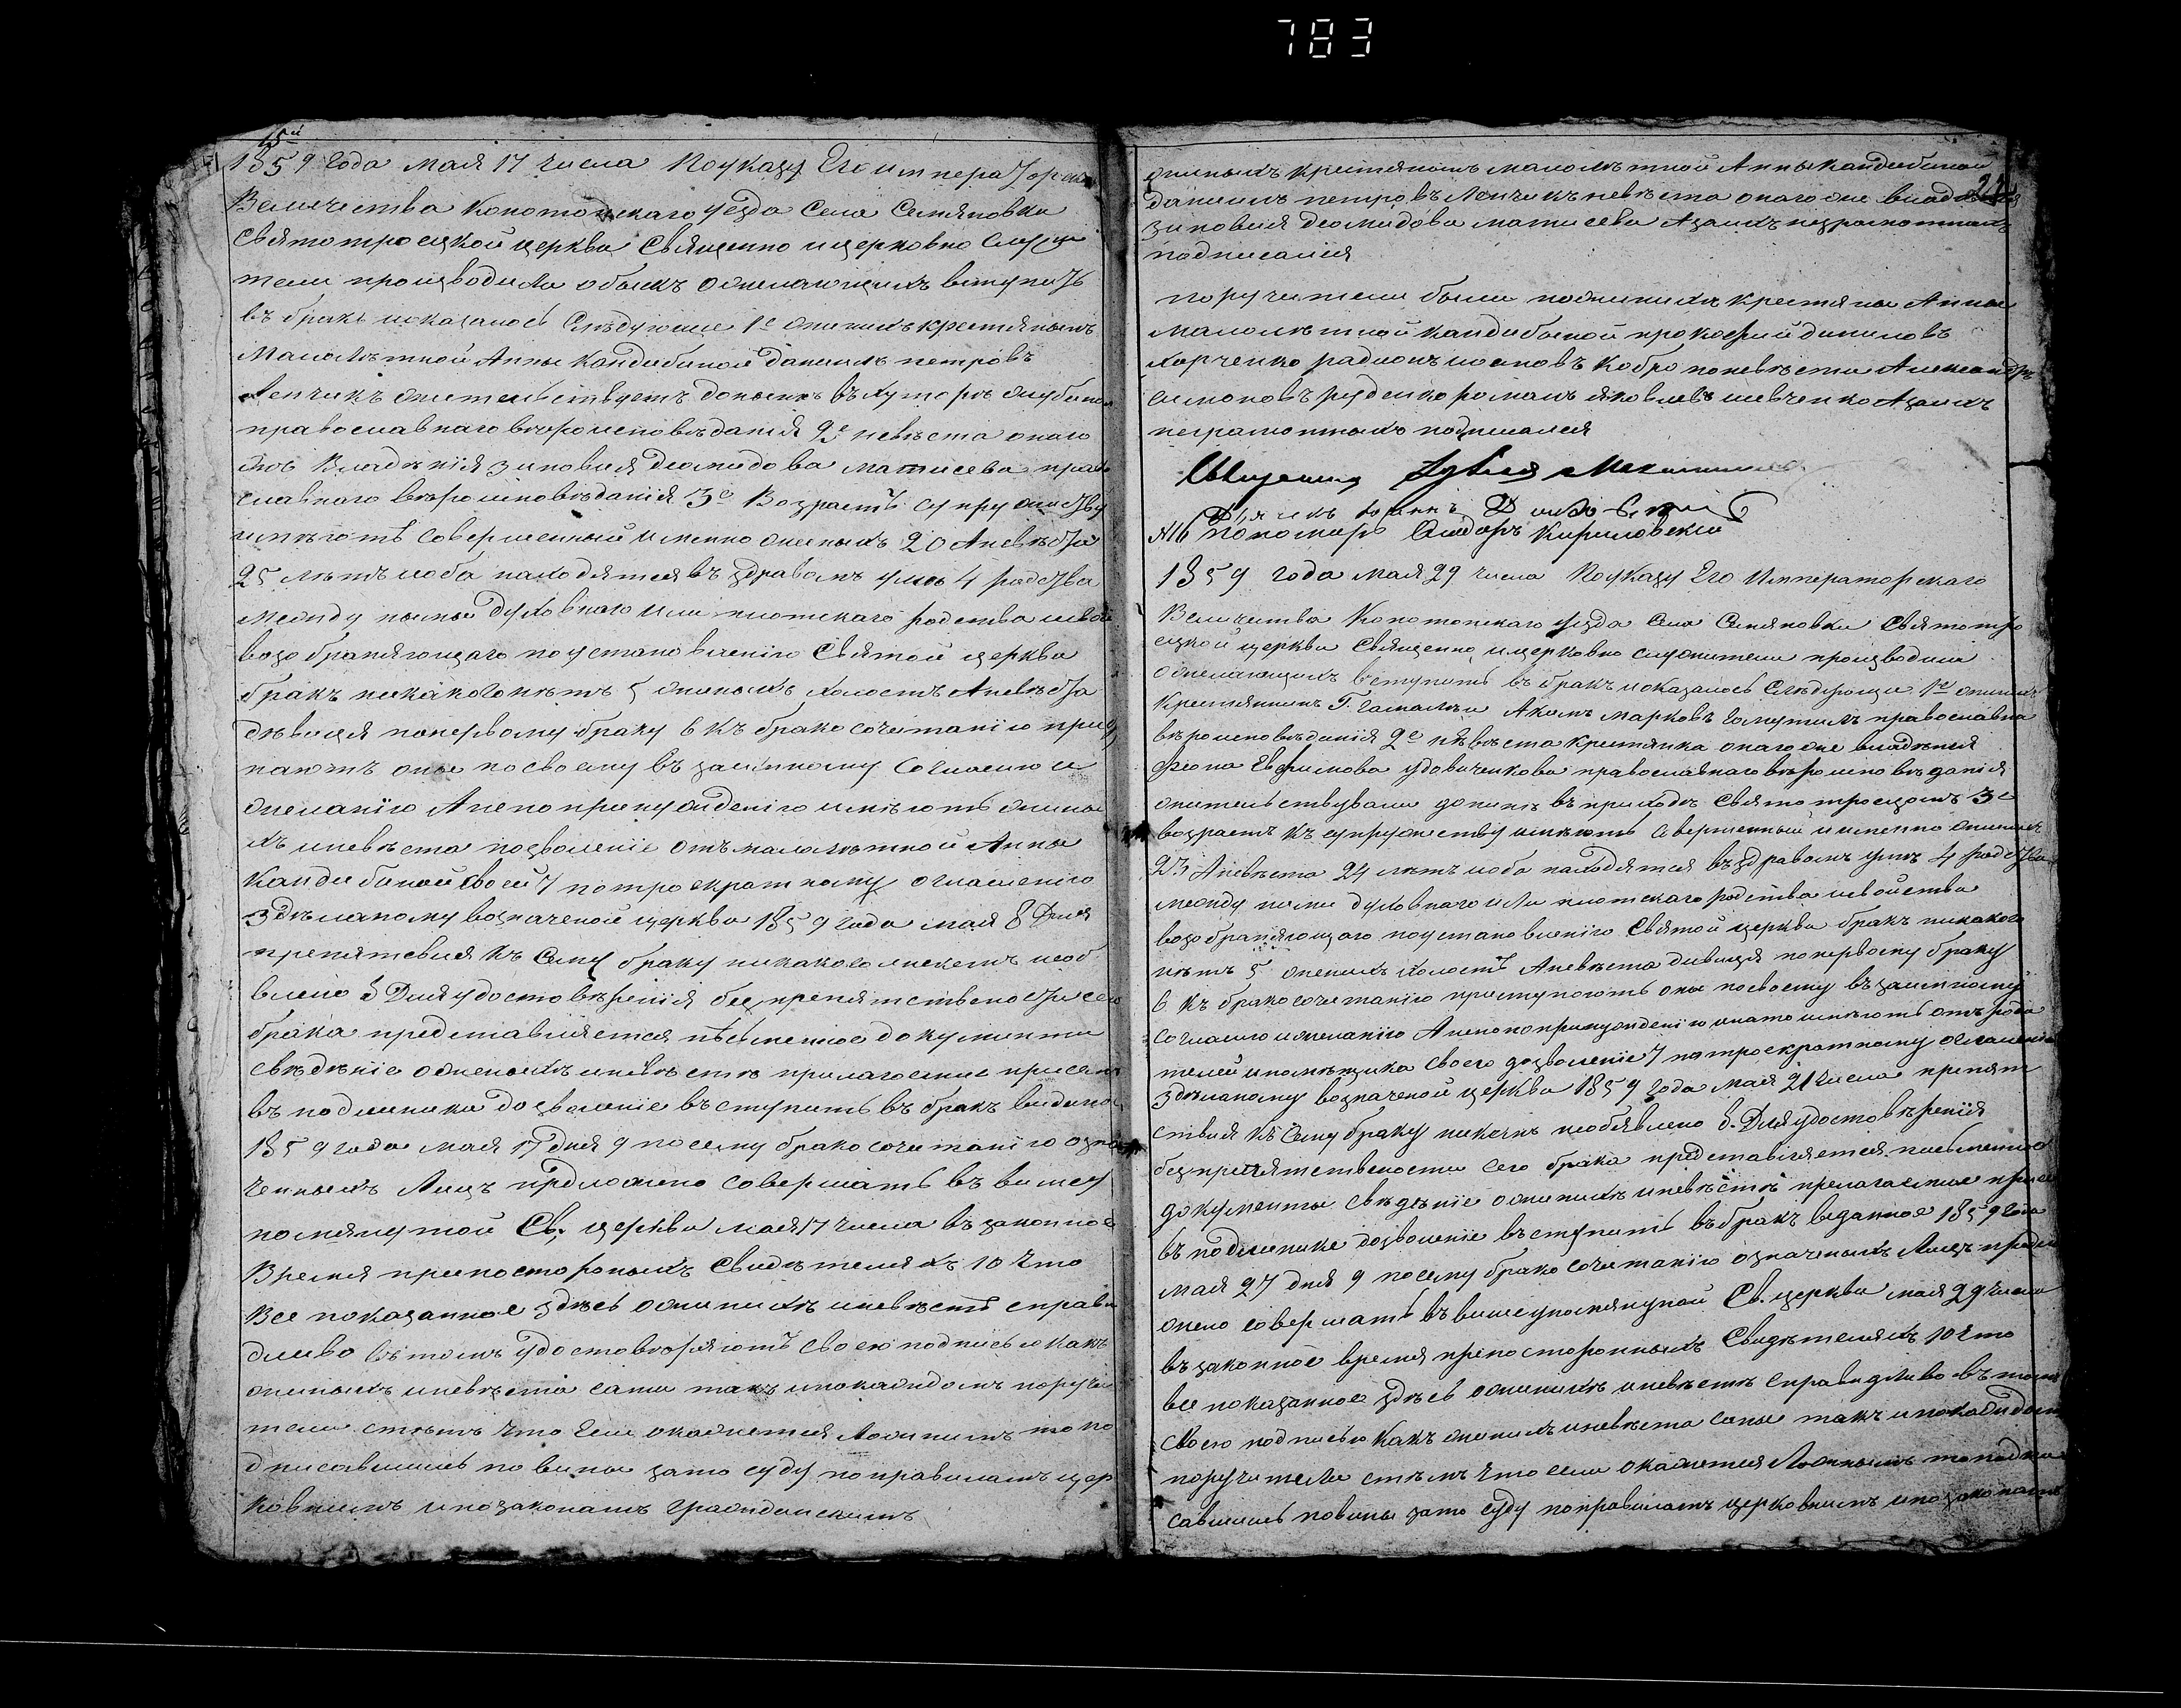 783
15й
1859 года мая 17 числа Поуказу Его императорска
Величества Конотопскаго уезда Села Семяновки
Святотроецкой церкви Священно ицерковно Служи
тели производили обыскъ ожелающихъ вступить
въ бракъ иоказалось Следующее 1е женихъ крестянинъ
Малолѣтной Анны Кандибиной Даниилъ петровъ
Лепчикъ жительствуетъ донынѣ въ хуторѣ
православнаго вѣроисповѣданія 2е невѣста онаго
же Владѣнія зиновия диомидова матисева право
славнаго вѣроисповѣданія 3е Возрастъ супружеству
имѣютъ совершенный именно женихъ 20 Аневѣста
25 лѣтъ иоба находятся въ здравомъ умѣ 4 родства
между ными духовнаго или плотскаго родства исвой
возобраняющаго поустановленію Святой церкви
бракъ никакого нѣтъ 5 женихъ холостъ Аневѣста
дѣвиця поперьвому браку 6 къ бракосочитанію присту
паютъ оны посвоему взаимному согласию и
желанію Анепопринуждению имѣютъ жены
хъ иневѣста позволеніе отъ малолѣтной Анны
Кандибиной своей 7 потроекратному огласленію
здѣланому возначеной церкви 1859 года мая 8 Дня
препятсвия къ Сему браку никакого никемъ необ
влено 8 Дляудостовѣренія безпрепятственостисего
брака представляется письменное документи
свѣдѣніе оженихѣ иневѣстѣ прилагоемые присемъ
въ подлинике дозволеніе въступить въ бракъ виданое
1859 года мая 17 дня 9 посему бракосочитанію озна
ченныхъ Лицъ предложено совершать въ вишеу
помянутой Св. церкви мая 17 числа въ законное
Время припосторонныхъ Свидѣтеляхъ 10 Что
Все показанное здѣсь оженихѣ иневѣстѣ справе
дливо въ томъ удостовѣряютъ своею подписью какъ
женихъ иневѣста сами такъ ипокаждомъ поручи
тели стѣмъ что Если окажется Ложнимъ то по
дписавшиесь повины зато суду поправиламъ цер
ковнимъ ипозаконамъ гражданскимъ
22
женихъ крестянинъ малолѣтной Анны Кандибиной
Даниилъ петровъ Лепчикъ невѣста онаго же владѣния
зиновия диомидова матисева Азаихъ неграмотнихъ
подписалия
поручители были поженихѣ крестяны Анны
малолѣтной Кандибыной прокофий даниловъ
Харченко радионъ ивановъ Кобро поневѣсти Александръ
симоновъ руденко романъ яковлевъ шевченко Азаихъ
неграмотныхъ подписался
Священникъ
Дьячекъ Иоаннъ
№16 Пономарь Сидоръ Кириловский
1859 года мая 29 числа Поуказу Его Императорскаго
Величества Конотопскаго уезда Села Семяновки Святотро
ецкой церкви Священно ицерковно служители производили
ожелающихъ вступить въ бракъ иоказалось Слѣдующи 1е женихъ
Крестянинъ Г. Гамалѣи Акимъ марковъ православна
вѣроисповѣданія 2е невѣста крестянка онаго же владѣния
Фиона Евфимова удовиченкова православнаго вѣроисповѣданія
жительствували донинѣ въ приходѣ Святотроецкомъ 3е
возрастъ къ супружеству имѣютъ совершенный иименно женихъ
23 Аневѣста 24 лѣтъ иоба находятся въздравомъ умѣ 4 родства
между ними духовнаго или плотскаго родства исвойства
возобраняющаго поустановленію Святой церкви бракъ никакого
нѣтъ 5 женихъ холостъ Аневѣста дивиця поперьвому браку
6 къ бракосочитанію приступаютъ оны посвоему възаимному
согласию ижеланію Анепопринужденію инато имѣютъ отъ роди
телей ипомѣщика своего дозволеніе 7 потроекратному огласленію
здѣланому возначеной церкви 1859 года мая 21 числа препят
ствия къ Сему браку никемъ необявлено 8. Для удостовѣренія
безпрепятствености сего брака представляется письменние
документы свѣдѣніе оженихѣ иневѣстѣ прилагаемие присе
въ подлинике дозволеніе въступить въ бракъ виданное 1859 года
мая 27 дня 9 посему бракосочитанію означеныхъ Лицъ предло
жено совершать въ вишеупомянутой Св. церкви мая 29 числа
въ законное время припосторонныхъ Свидѣтеляхъ 10 Что
все показанное здѣсь оженихѣ иневѣстѣ справидливо въ томъ
своею подписью Какъ женихъ иневѣста сами такъ ипокаждом
поручители стѣмъ что если окажется Ложнымъ топодпи
савшиись повины зато суду поправиламъ церковнимъ ипозаконамъ